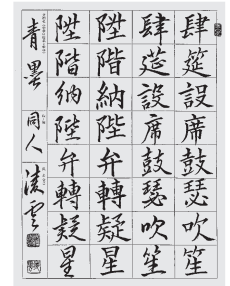 肆筵設席鼓瑟吹笙
肆筵設席鼓瑟吹笙
陞階納陛弁轉疑星
陞階納陛弁轉疑星
青墨 同人 雲